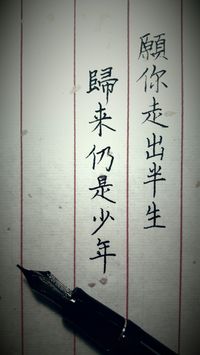 願你走出半生
歸来仍是少年